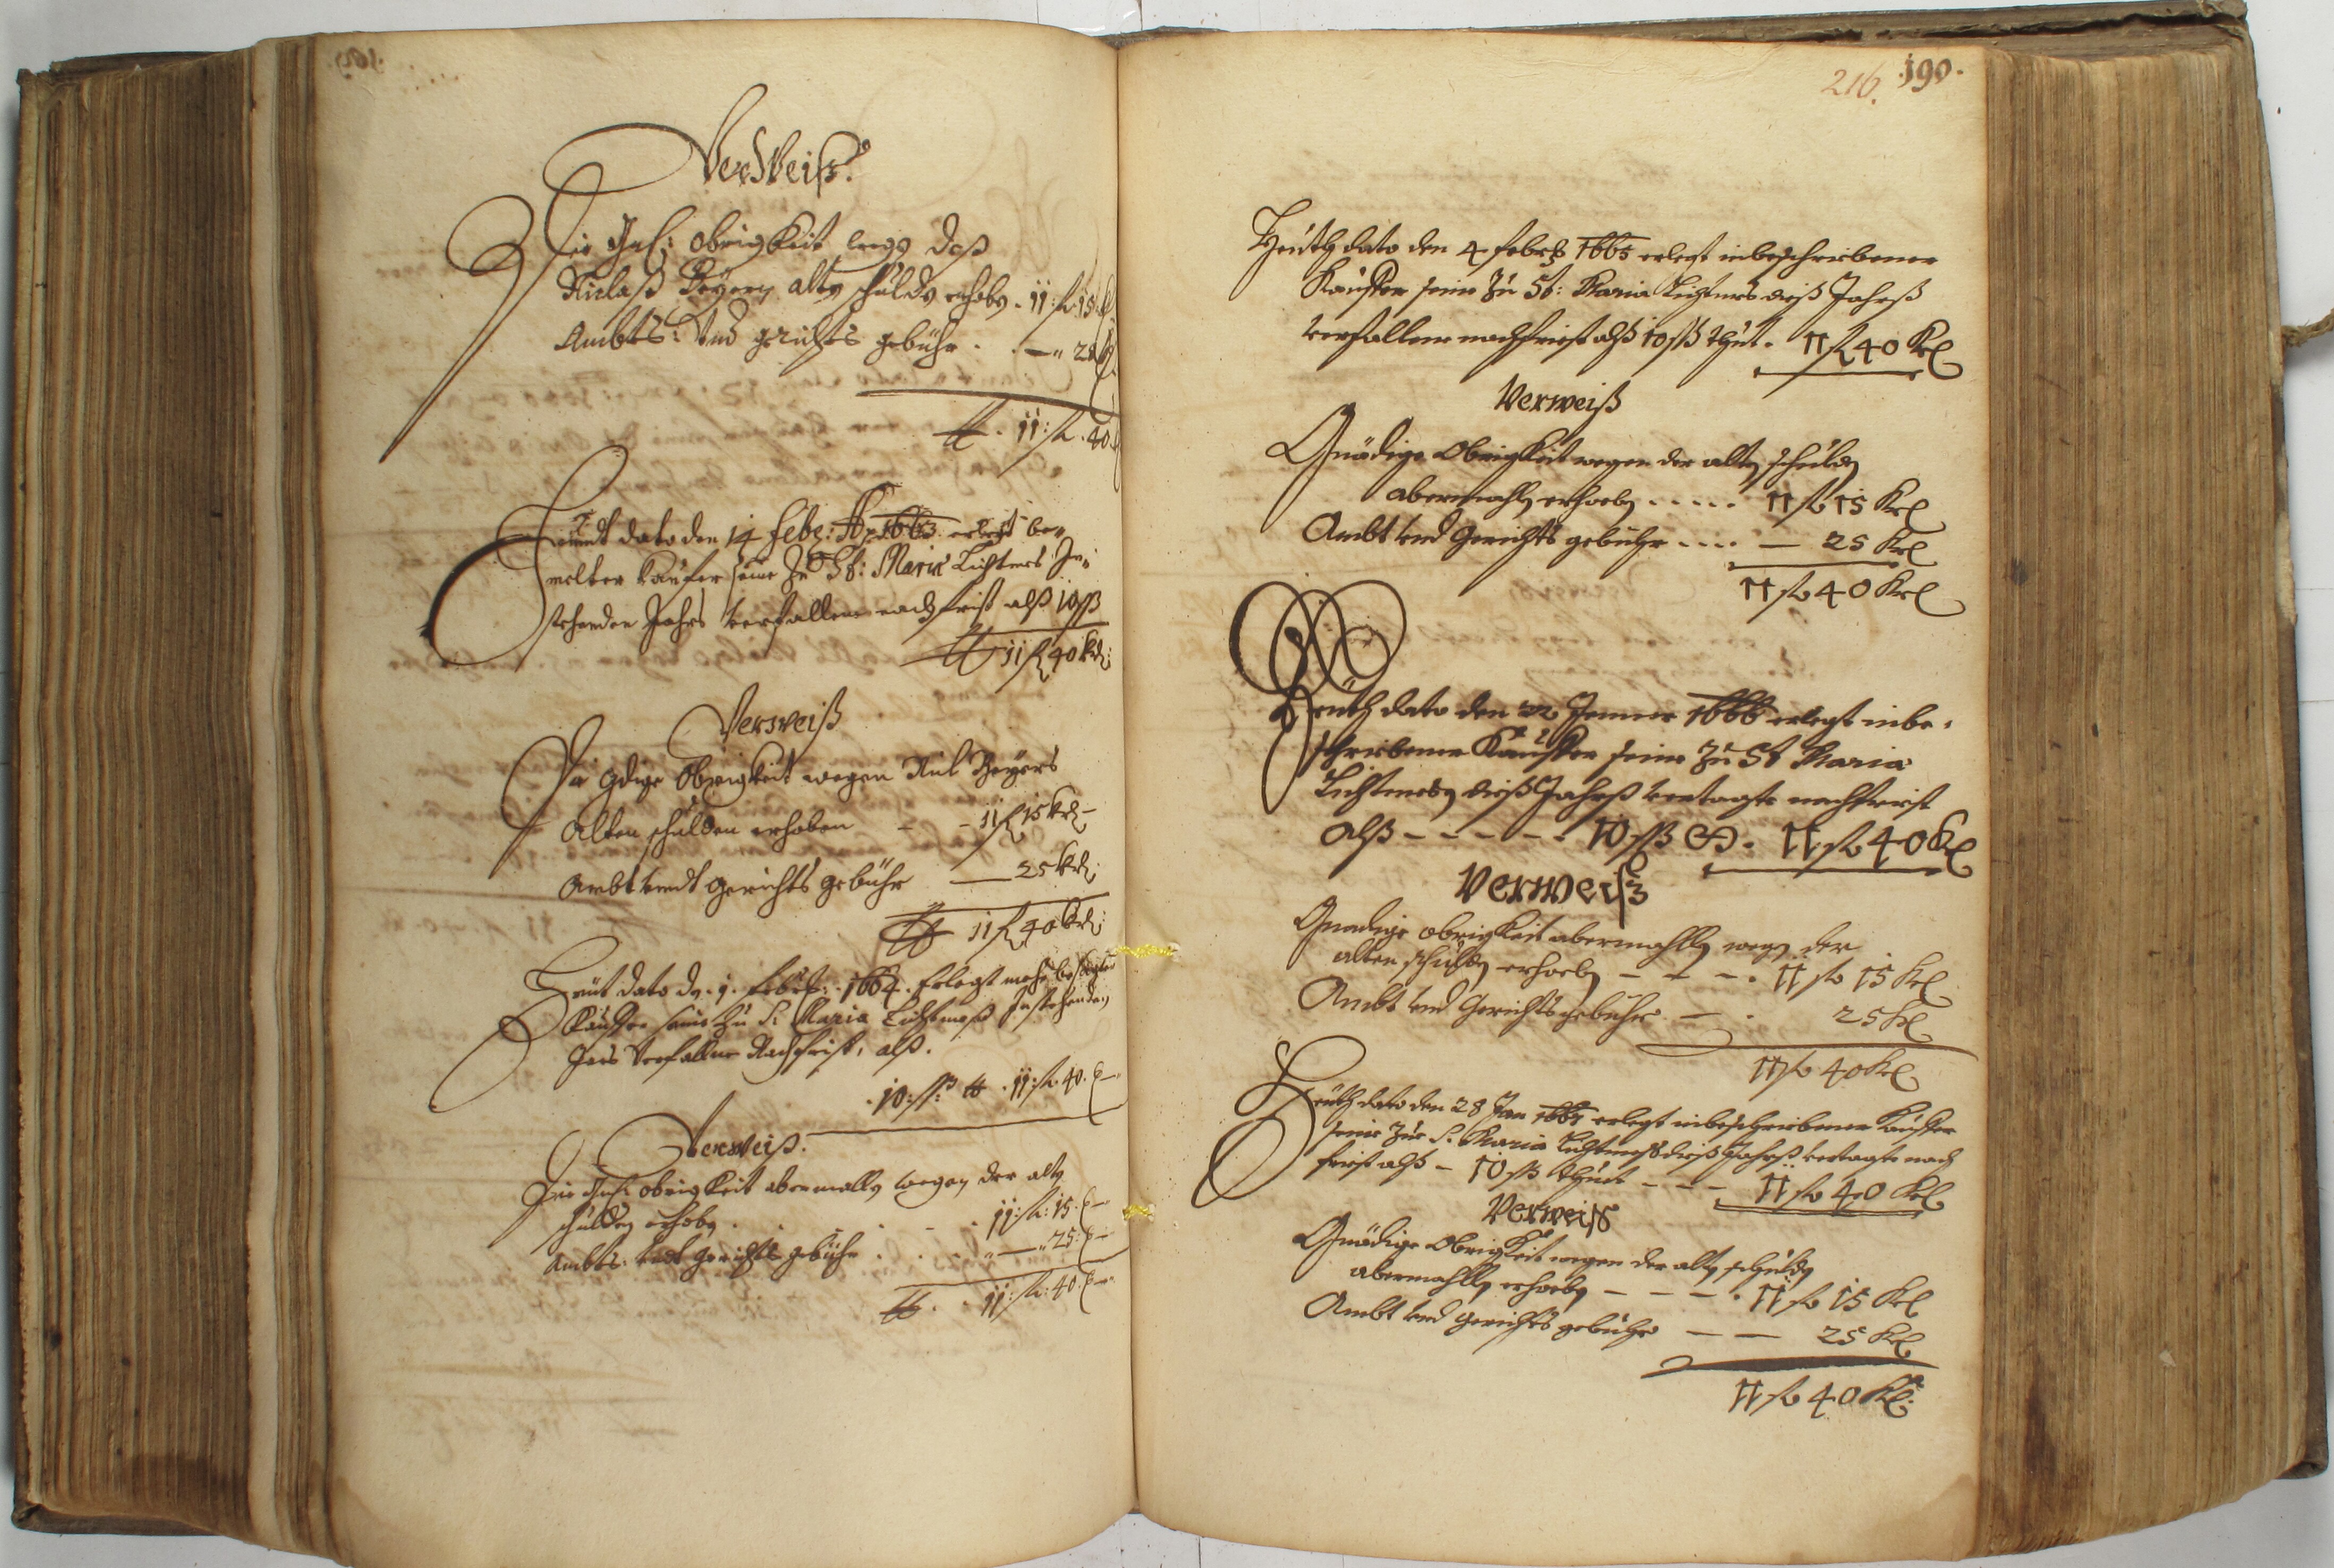 VerWeiß.
Die Gn: obrigkeit wegen deß
Niclaß Beyern alten schulden erhoben . 11: fl. 15
Ambts: Und gerichts gebühr . . — 25
11: fl. 40
Heundt dato den 14 Febr: Ao 1663 erlegt be-
melter Kaufer seine Zu St: Maria Liechtmes In-
stehenden Jahrs verfallene nachfrist alß 10 ß
11 fl 40 kr:
Verweiß
Die Gdige Obrigkeit wegen Nicl Beyers
Alten schulden erhoben – – 11 fl 15 kr –
Ambt undt Gerichts gebühr — 25 kr:
11 fl 40 kr:
Heüt dato dn. 1. Febr: 1664. Erlegt mehr besagter
Kauffer seine Zu S: Maria Liechtmeß Instehenden
Jars Verfallne Nachfrist, alß.
. 10: ß . 11: fl. 40.
Verweiß.
Die Gn: obrigkeit abermallen wegen der alten
schulden erhoben . . . 11: fl: 15.
Ambts. undt gerichts gebühr . . . — 25.
11: fl: 40.
216. .190.
Heüth dato den 4 Febr 1665 erlegt inbeschriebener
Kauffer seine Zu St: Maria Lichtmes dieß Jahrß
verfallene nachfrist alß 10 ß thut . 11 fl 40 Kr
Verweiß
Gnädige Obrigkeit wegen der alten schulden
abermahln erhoben . . . . . 11 fl 15 Kr
Ambt und Gerichts gebühr . . . . — 25 Kr
11 fl 40 Kr
Heüth dato den 22 Jenner 1666 erlegt inbe-
schriebener Kauffer seine Zu St Maria
Lichtmeßen dieß Jahrß vertagte nachfrist
alß – – – – – . 10 ß . 11 fl 40 Kr
Verweiß
Gnadige obrigkeit abermahlln wegen der
alten schulden erhoben – – – . 11 fl 15 Kr
Ambt und Gerichtsgebühr – . 25 Kr
11 fl 40 Kr
Heüth dato den 28 Jan 1667 erlegt inbeschriebener Kauffer
seine Zue S. Maria Lichtmeß dieß Jahrß vertagte nach
frist alß – 10 ß thuet – – – 11 fl 40 Kr
Verweiß
Gnädige Obrigkeit wegen der alten schulden
abermahlln erhoben – – – – . 11 fl 15 Kr
Ambt und gerichts gebühr – — 25 Kr
11 fl 40 Kr.